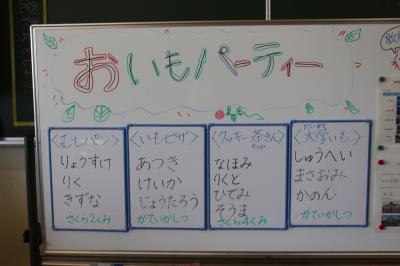 おいもパーティー
〈むしパン〉
りょうすけ
りく
きずな
さくら2くみ
〈いもピザ〉
あつき
けいか
じょうたろう
かていかしつ
〈クッキー 茶きん〉
ちゃ
なほみ
りくと
ひでみ
そうま
さくら4くみ
だいがく
〈大学いも〉
しゅうへい
まさおみ
かのん
かていかしつ